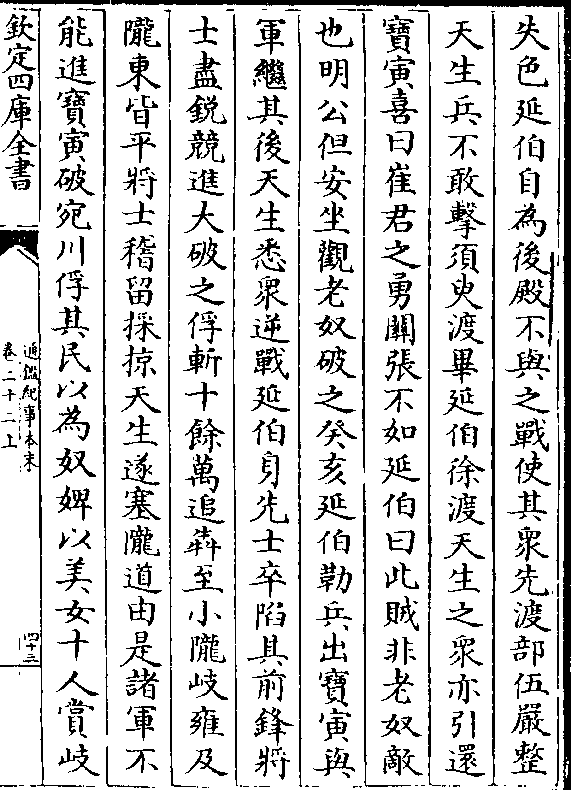 失色延伯自為後殿不與之戰使其衆先渡部伍嚴整
天生兵不敢擊須臾渡畢延伯徐渡天生之衆亦引還
寶寅喜曰崔君之勇關張不如延伯曰此賊非老奴敵
也明公但安坐觀老奴破之癸亥延伯勒兵出寶寅與
軍繼其後天生悉衆逆戰延伯身先士卒陷其前鋒將
士盡銳競進大破之俘斬十餘萬追犇至小隴岐雍及
隴東皆平將士稽留採掠天生遂塞隴道由是諸軍不
能進寶寅破宛川俘其民以為奴婢以美女十人賞岐
欽定四庫全書
通鑑紀事本末
卷二十二上
四十三